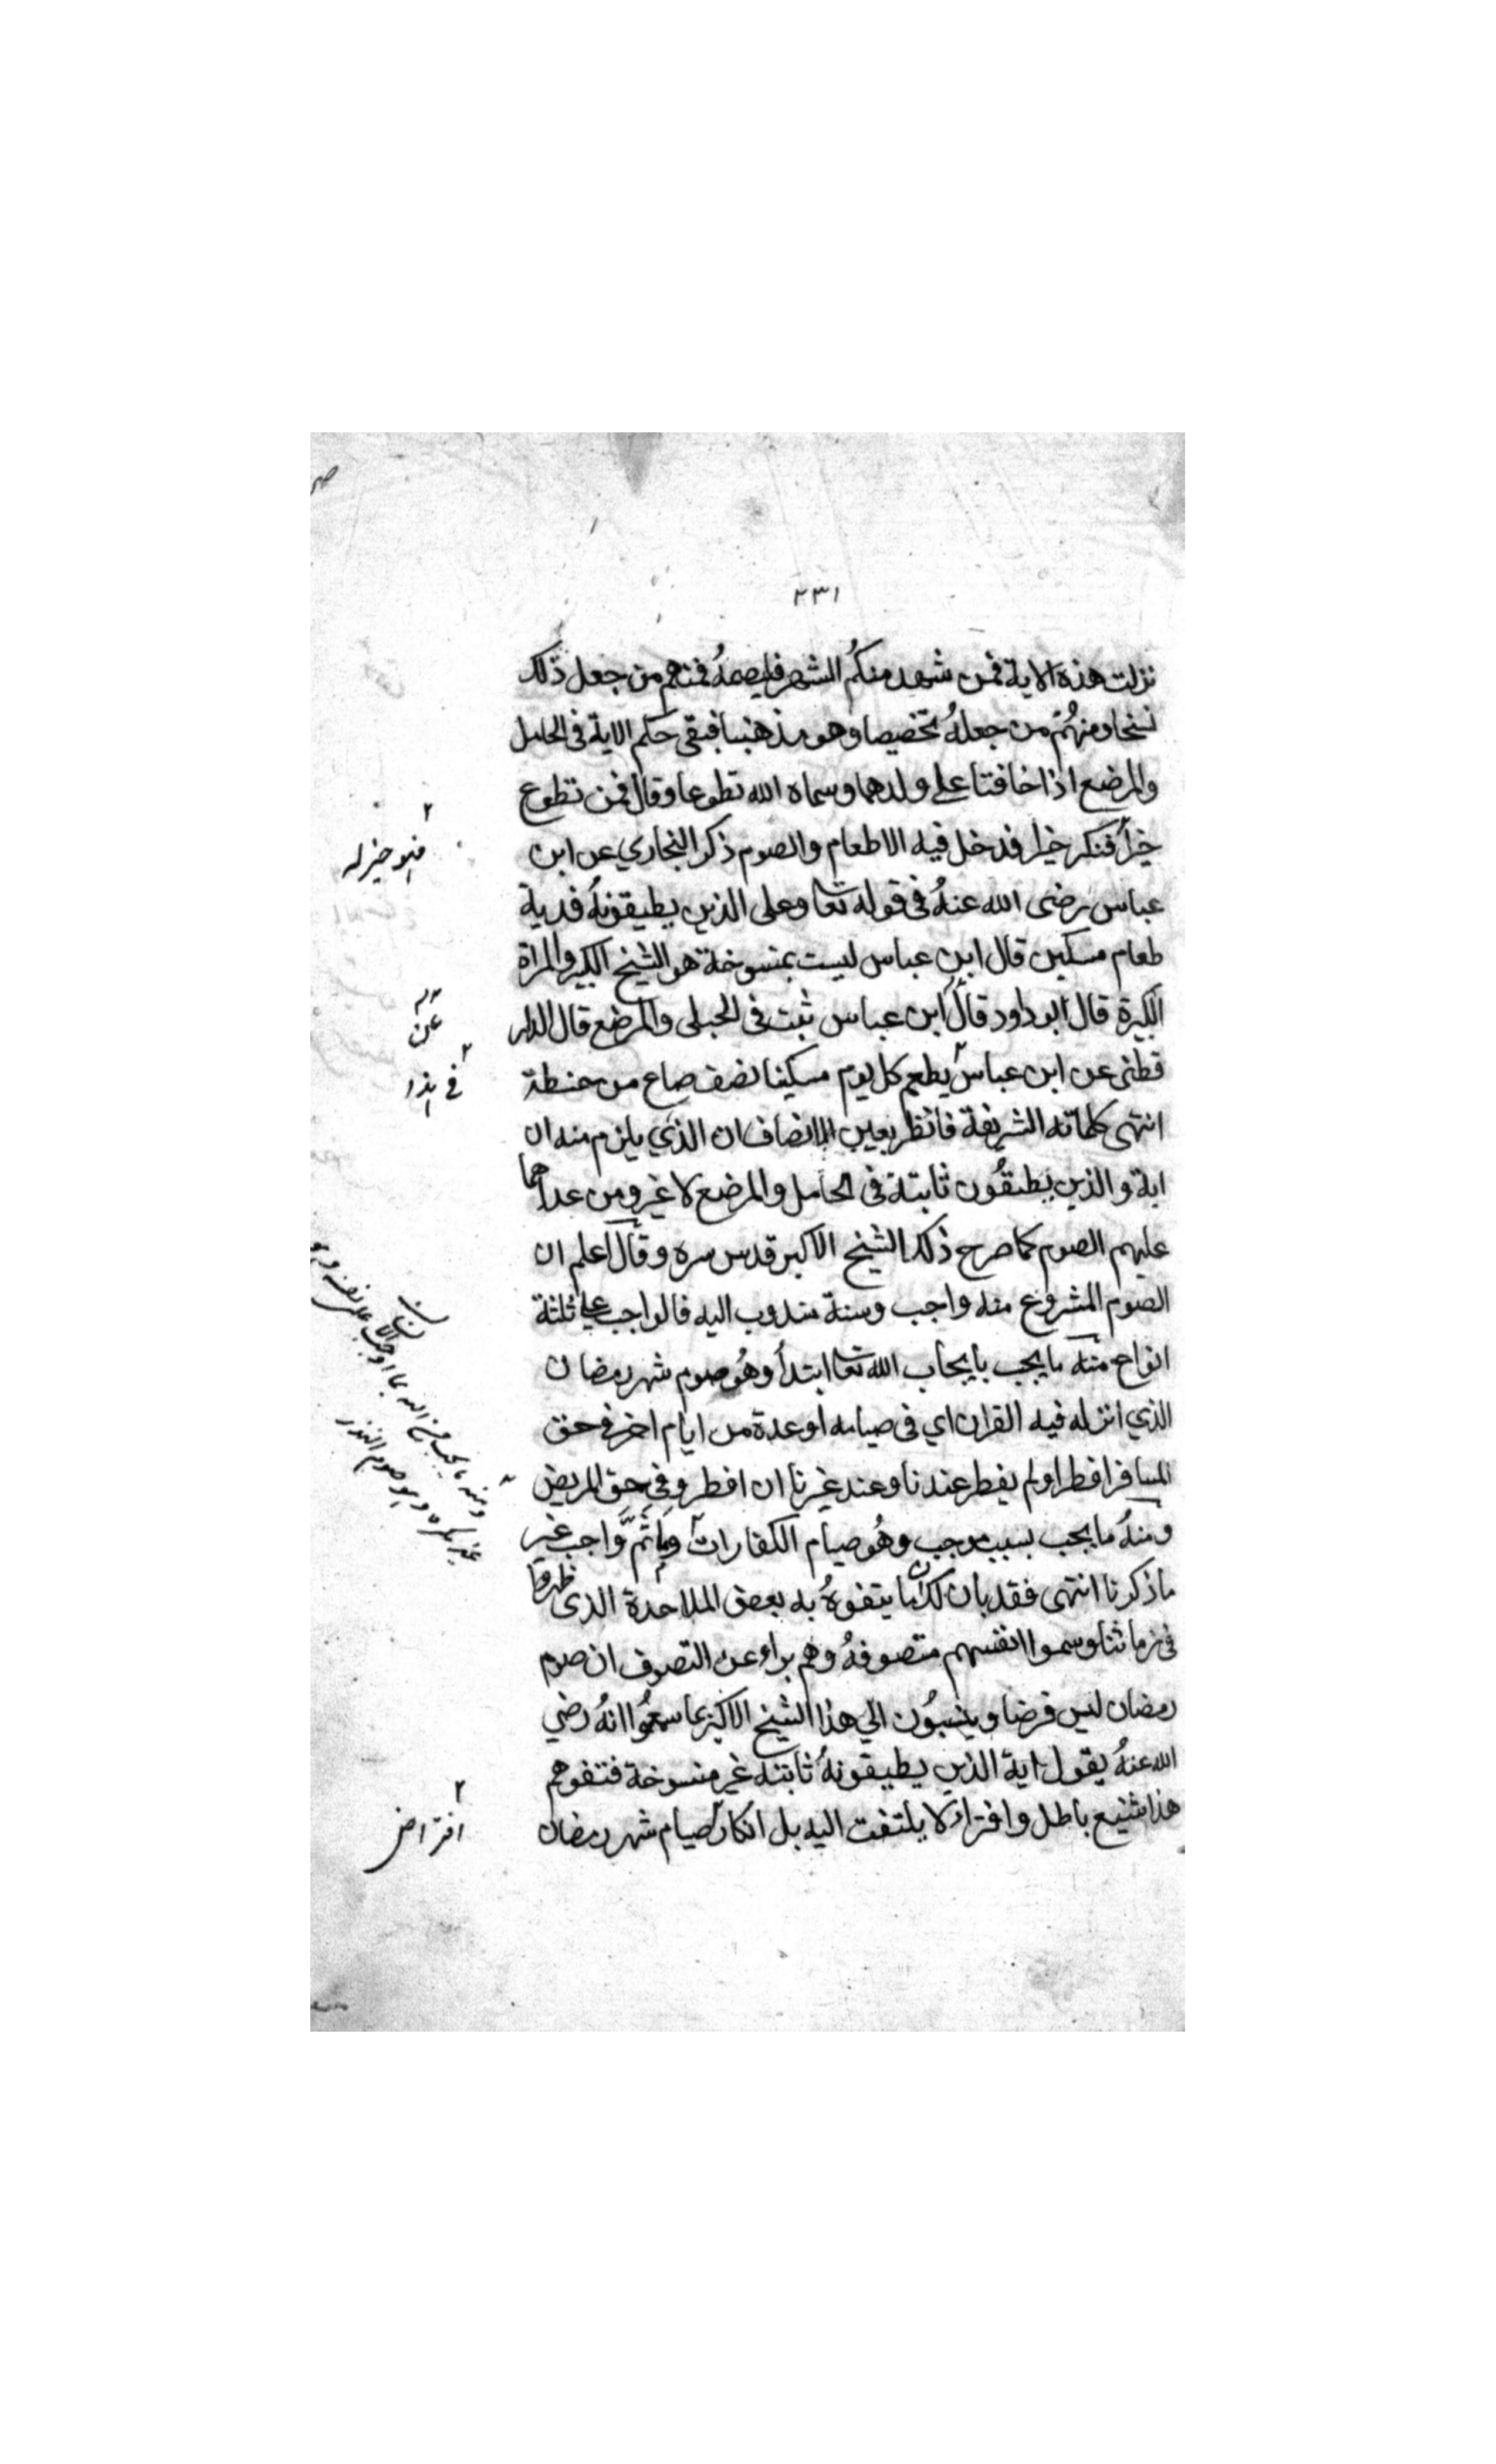 ٢٣١
نزلت هذه الاية فمن شهد منكم الشهر فليصمهُ فمنهم من جعل ذلك
نسخا ومنهُم من جعلهُ تخصيصا وهو مذهبنا فبقى حكم الاية فى الحامل
والمرضع اذا خافتا على ولدهما وسماه الله تطوعا وقال فمن تطوع
خيراً فنكر خيرا فدخل فيه الاطعام والصوم ذكر البخاري عن ابن
فهو خير له
عباس رضى الله عنهُ فى قوله تعا وعلى الذين يطيقونهُ فدية
طعام مسكين قال ابن عباس ليست بمنسوخة هو الشيخ الكبير والمراة
الكبيرة قال ابو داود قال ابن عباس ثبت فى الحبلى والمرضع قال الدار
عن
قطنى عن ابن عباس يطعم كل يوم مسكينا نصف صاع من حنطة
فى هذا
انتهى كلماته الشريفة فانظر بعين الانصاف ان الذي يلزم منه ان
اية والذين يطيقُون ثابتة فى الحامل والمرضع لا غير ومن عداهما
عليهم الصوم كما صرح ذلك الشيخ الاكبر قدس سره وقال اعلم ان
الصوم المشروع منه واجب وسنة مندوب اليه فالواجب على ثلثة
انواع منه ما يجب بايجاب الله تعا ابتداً وهُو صوم شهر رمضان
الذي انزله فيه القران اي فى صيامه او عدة من ايام اخر فى حق
المسافر افطر او لم يفطر عندنا وعند غيرنا ان افطر وفى حق المريض
ومنهُ ما يجب بسبب موجب وهُو صيام الكفارات وما ثَمَّ واجب غير
ومنه ما يجب من الله بما اوجبه الانسان على نفسه
غير مكره وهو صوم النذر
ماذكرنا انتهى فقد بان لك ان ما يتفوهُ به بعض الملاحدة الذى ظهروا
فى زماننا وسموا انفسهم متصوفهُ وهم براء عن التصوف ان صوم
رمضان ليس فرضا وينسبُون الي هذا الشيخ الاكبر بما سمعُوا انهُ رضي
الله عنهُ يقول اية الذين يطيقونهُ ثابتة غير منسوخة فتفوههم
هذا شنيع باطل وافتراء لا يلتفت اليه بل انكار صيام شهر رمضان
افتراض